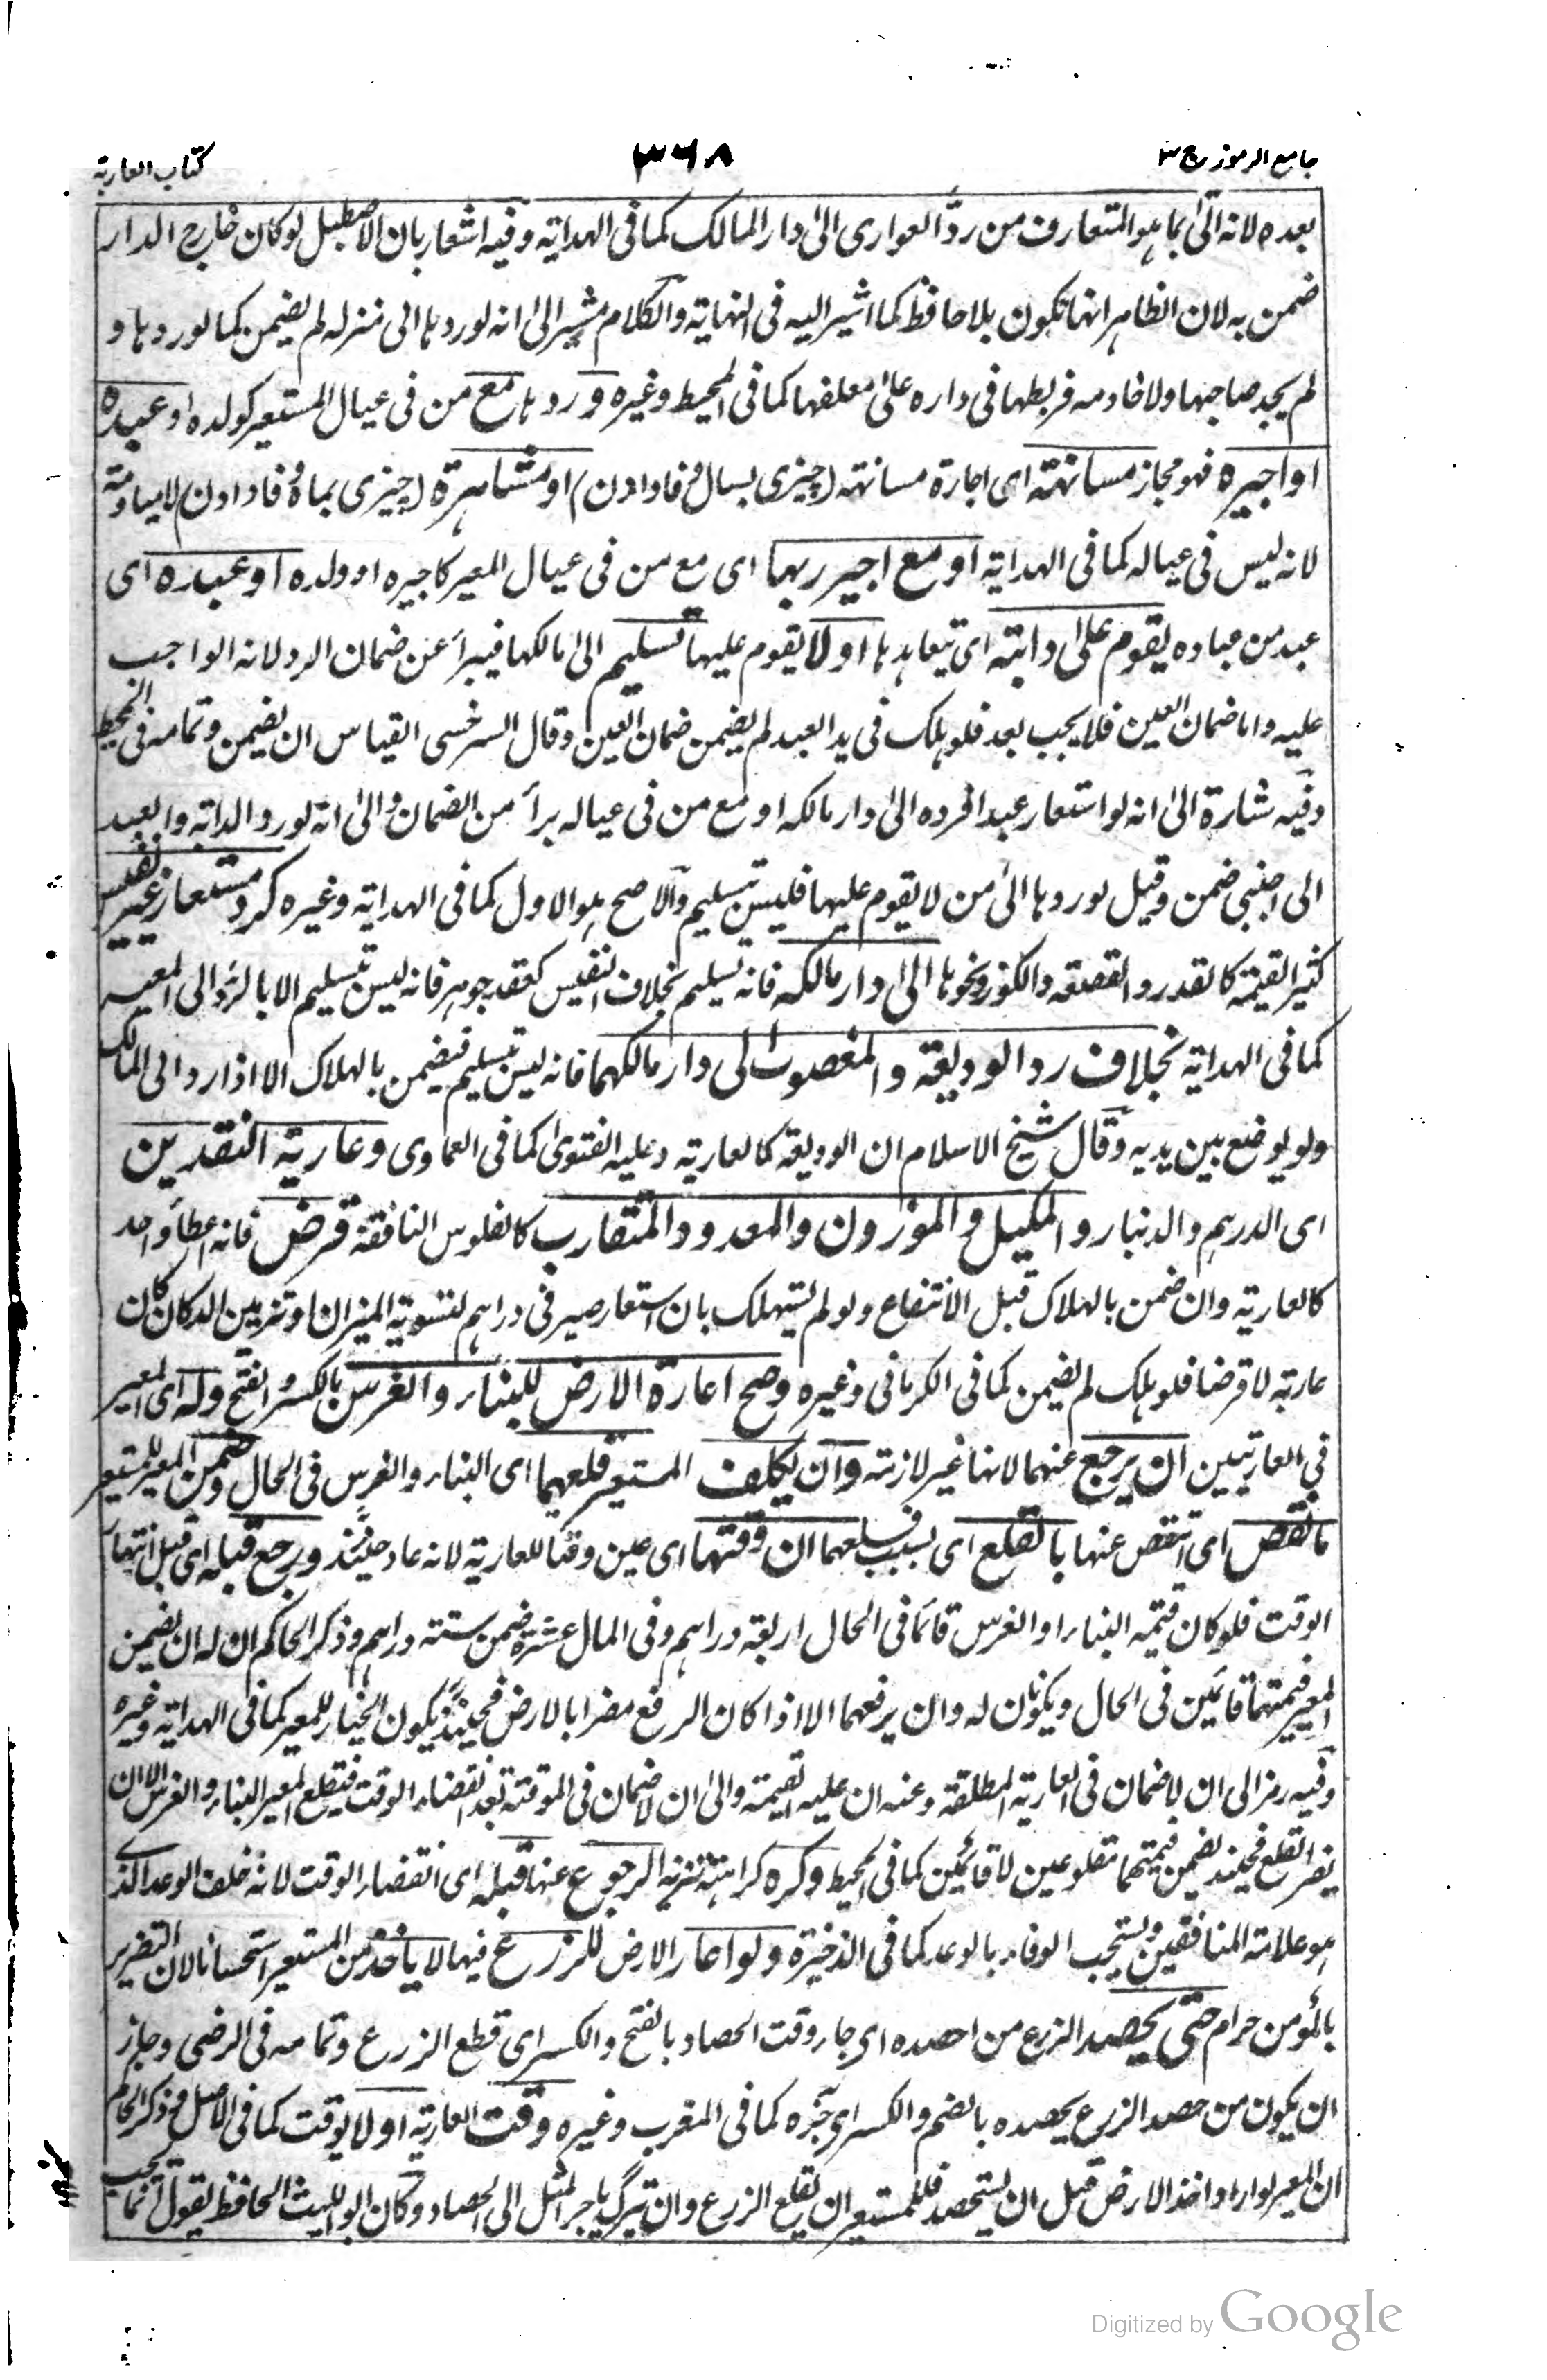 جامع الرموز ج ٣
٣٦٨
كتاب العارية
بعده لانه اتى بما هو المتعارف من ردّ العوارى الى دار المالك كما فى الهداية وفيه اشعار بان الاصطبل لو كان خارج الدار
ضمن به لان الظاهر انها تكون بلا حافظ كما اشير اليه فى النهاية والكلام مشير الى انه لو ردها الى منزله لم يضمن كما لو ردها و
لم يجد صاحبها ولا خادمه فربطها فى داره على معلفها كما فى المحيط وغيره و ردها مع من فى عيال المستعير كولده او عبده
او اجيره فهو مجاز مسانهة اى اجارة مسانهة (چيزى بسال فا دادن) او مشاهرة (چيزى بماه فا دادن) لا مياومة
لانه ليس فى عياله كما فى الهداية او مع اجير ربها اى مع من فى عيال المعير كاجيره او ولده او عبده اى
عبد من عباده يقوم على دابته اى يتعاهدها او لا يقوم عليها تسليم الى مالكها فيبرأ عن ضمان الرد لانه الواجب
عليه واما ضمان العين فلا يجب بعد فلو هلك فى يد العبد لم يضمن ضمان العين وقال السرخسى القياس ان يضمن وتمامه فى المحيط
وفيه شارة الى انه لو استعار عبدا فرده الى دار مالكه او مع من فى عياله برأ من الضمان والى انه لو رد الدابة والعبد
الى اجنبى ضمن وقيل لو ردها الى من لا يقوم عليها فليس تسليم والاصح هو الاول كما فى الهداية وغيره كرد مستعار غير نفيس
كثير القيمة كالقدر والقصعة والكوز ونحوها الى دار مالكه فانه تسليم بخلاف النفيس كعقد جوهر فانه ليس تسليم الا بالرد الى المعير
كما فى الهداية بخلاف رد الوديعة والمغصوب الى دار مالكهما فانه ليس تسليم فيضمن بالهلاك الا اذا رد الى المالك
ولو يوضع بين يديه وقال شيخ الاسلام ان الوديعة كالعارية وعليه الفتوى كما فى العمادى وعارية النقدين
اى الدرهم والدينار والمكيل والموزون والمعدود المتقارب كالفلوس النافقة قرض فانه اعطأ واحد
كالعارية وان ضمن بالهلاك قبل الانتفاع ولو لم يستهلك بان استعار صيرفى دراهم لتسوية الميزان او تزيين الدكان كان
عارية لا قرضا فلو هلك لم يضمن كما فى الكرمانى وغيره وصح اعارة الارض للبناء والغرس بالكسر والفتح وله اى المعير
فى العاريتين ان يرجع عنهما لانها غير لازمة وان يكلف المستعير قلعهما اى البناء والغرس فى الحال وضمن المعير للمستعير
ما نقص اى انتقص عنها بالقلع اى بسبب قلعهما ان وقتها اى عين وقتا للعارية لانه عاد حينئذ ورجع قبله اى قبل انتهاء
الوقت فلو كان قيمة البناء او الغرس قائما فى الحال اربعة دراهم وفى المال عشرة ضمن ستة دراهم وذكر الحاكم ان له ان يضمن
المعير قيمتهما قائمين فى الحال ويكونان له وان يرفعهما الا اذا كان الرفع مضرا بالارض فحينئذ يكون الخيار للمعير كما فى الهداية وغيره
وفيه رمز الى ان لا ضمان فى العارية المطلقة وعنه ان عليه القيمة والى ان لا ضمان فى الموقتة بعد انقضاء الوقت فيقلع المعير البناء والغرس الا ان
يضر القلع فحينئذ يضمن قيمتهما مقلوعين لا قائمين كما فى المحيط وكره كراهة تنزيه الرجوع عنها قبله اى انقضاء الوقت لانه خلف الوعد الذى
هو علامة المنافقين ويستحب الوفاء بالوعد كما فى الذخيرة ولو اعار الارض للزرع فيها لا ياخذ من المستعير استحسانا لان التضرير
بالمؤمن حرام حتى يحصد الزرع من احصده اى جاء وقت الحصاد بالفتح والكسر اى قطع الزرع وتمامه فى الرضى وجاز
ان يكون من حصد الزرع يحصده بالضم والكسر اى جزه كما فى المغرب وغيره وقت العارية او لا يوقت كما فى الاصل وذكر الحاكم
ان المعير لو اراد اخذ الارض قبل ان يستحصد فللمستعير ان يقلع الزرع وان يترك باجر المثل الى الحصاد وكان ابو الليث الحافظ يقول انما يجب
Digitized by Google